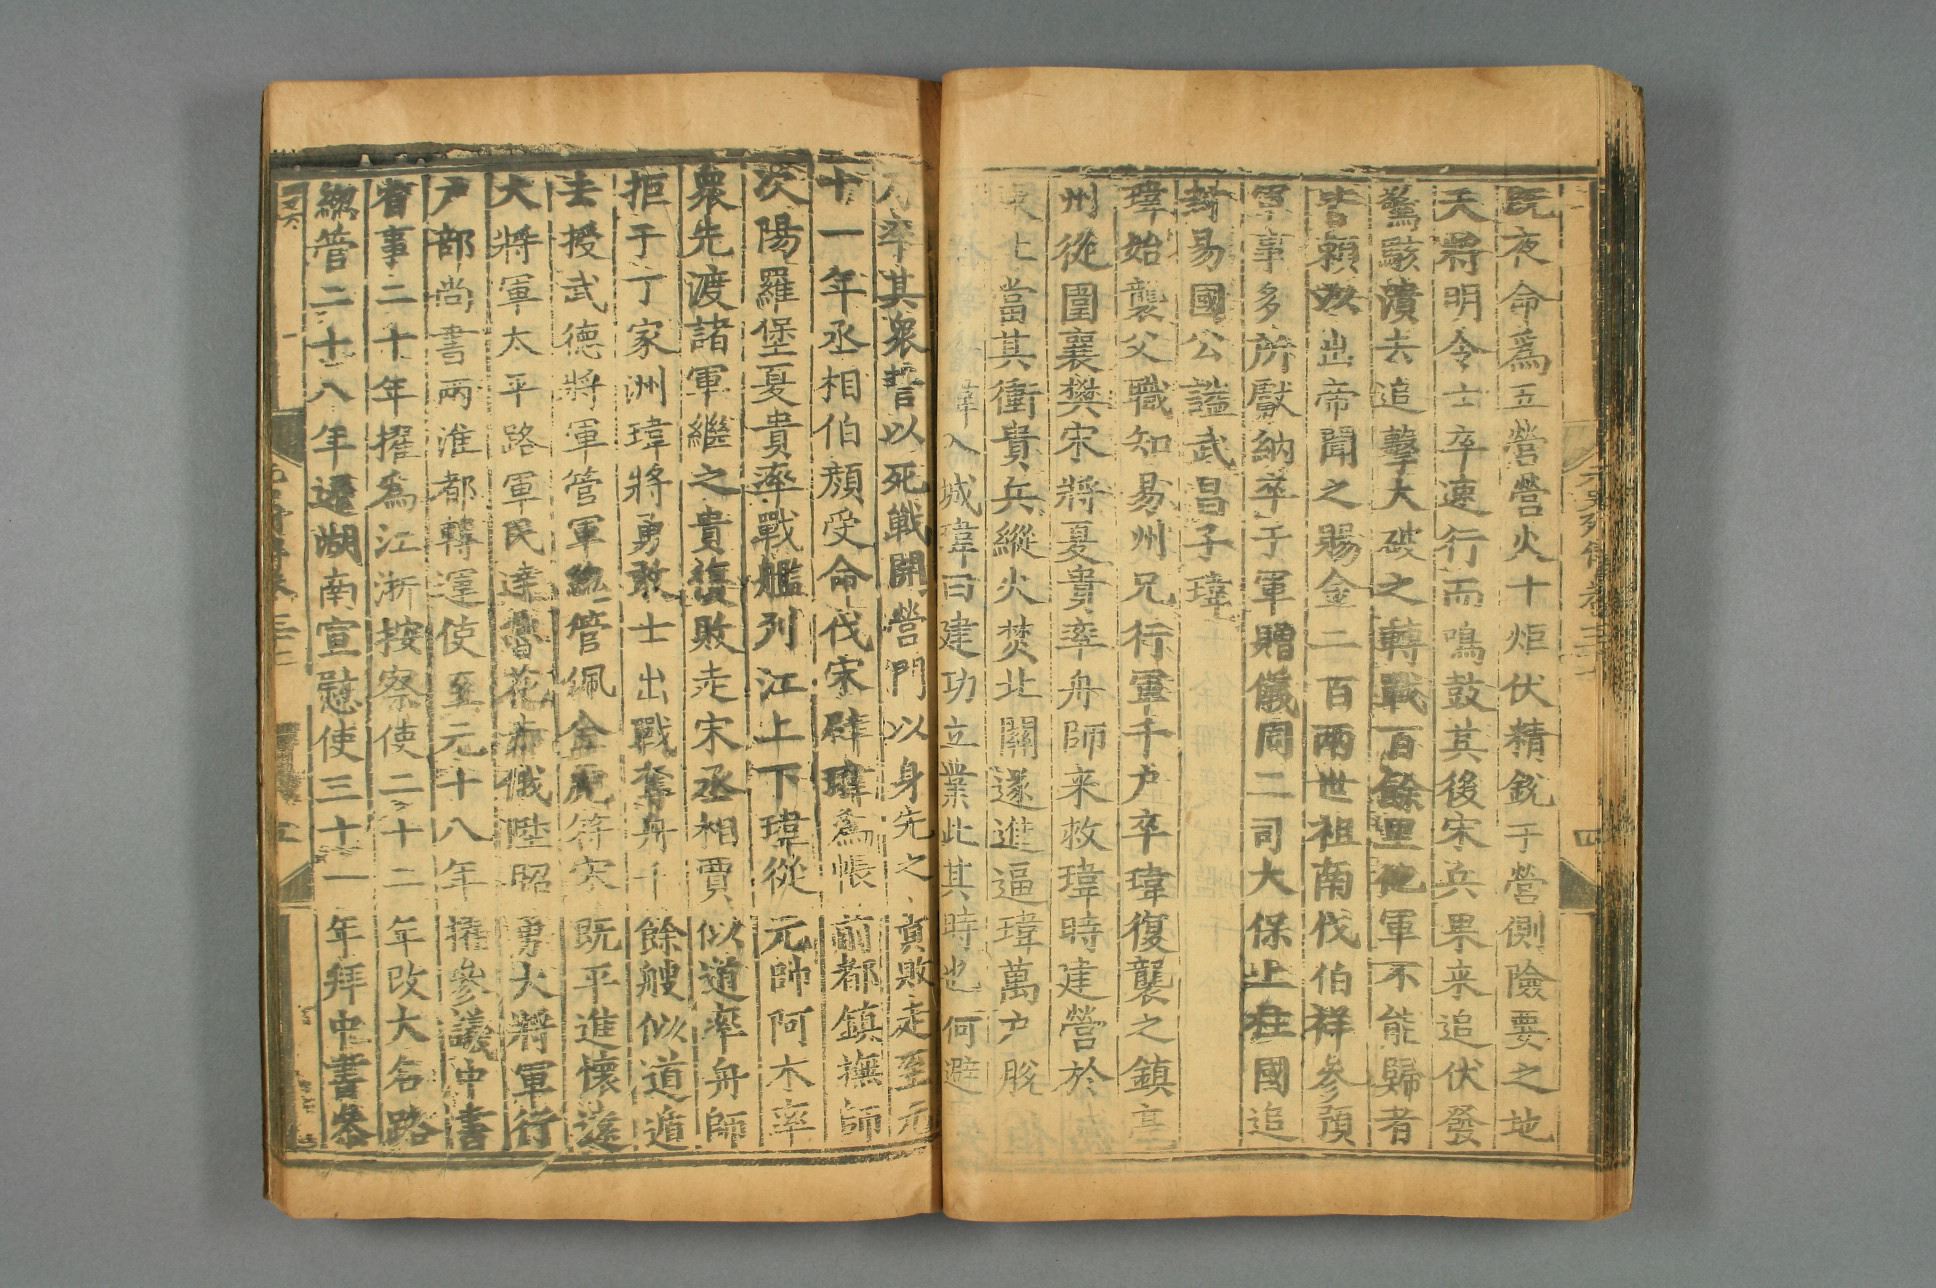 既夜命爲五營營火十炬伏精銳于營側險要之地
天將明令士卒速行而鳴鼓其後宋兵果来追伏發
驚駭潰去追擊大破之轉戰百餘里他軍不能歸者
皆頼以出帝聞之賜金二百兩世祖南伐伯祥參預
軍事多所獻納卒于軍贈儀同二司大保上柱國追
封易國公諡武昌子瑋
瑋始襲父職知易州兄行軍千户卒瑋復襲之鎮亳
州從圍襄樊宋將夏貴率舟師来救瑋時建營於
東上當其衝貴兵縱火焚北關遂進逼瑋萬户脫
城瑋曰建功立業此其時也何避
率其衆誓以死戰開營門以身先之貴敗走至元
十一年丞相伯顏受命伐宋辟瑋爲帳前都鎮撫師
次陽羅堡夏貴率戰艦列江上下瑋從元帥阿木率
衆先渡諸軍繼之貴復敗走宋丞相賈似道率舟師
拒于丁家洲瑋將勇敢士出戰奪舟千餘艘似道遁
去授武德將軍管軍緫管佩金虎符宋既平進懷遠
大將軍太平路軍民達魯花赤俄陞昭勇大將軍行
户部尚書兩淮都轉運使至元十八年擢參議中書
省事二十年擢爲江淅按察使二十二年改大名路
緫管二十八年遷湖南宣慰使三十一年拜中書叅